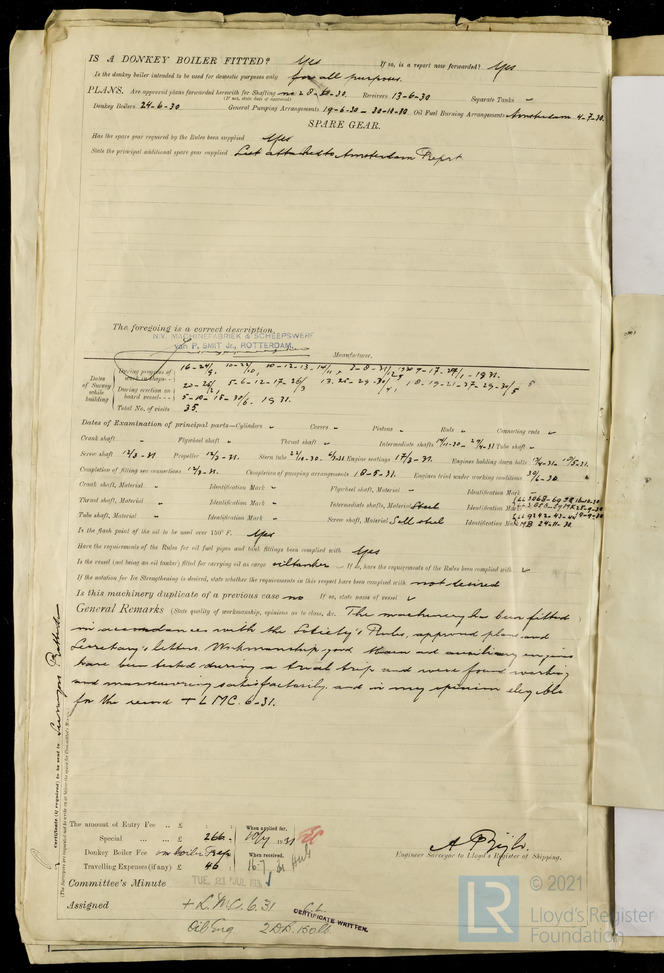 IS A DONKEY BOILER FITTED? Yes If so, is a report now forwarded? Yes
Is the donkey boiler intended to be used for domestic purposes only for all purposes.
PLANS. Are approved plans forwarded herewith for Shafting no 28-10-30. Receivers 13-6-30 Separate Tanks
(If not, state date of approval)
Donkey Boilers 24-6-30 General Pumping Arrangements 19-6-30 - 30-10-30. Oil Fuel Burning Arrangements Amsterdam 4-7-30.
SPARE GEAR.
Has the spare gear required by the Rules been supplied Yes
State the principal additional spare gear supplied List attached to Amsterdam Report
The foregoing is a correct description,
N.V. MACHINEFABRIEK & SCHEEPSWERF
van P. SMIT Jr., ROTTERDAM.
Manufacturer.
Dates of Survey while building
During progress of work in shops - -
During erection on board vessel - - -
5-10-15-30/6. 1931.
Total No. of visits 35.
Dates of Examination of principal parts—Cylinders Covers Pistons Rods Connecting rods
Crank shaft Flywheel shaft Thrust shaft Intermediate shafts 14/11-30 - 29/4-31 Tube shaft
Screw shaft 12/3-31 Propeller 12/3-31. Stern tube Engine seatings 17/3-31. Engines holding down bolts
Completion of fitting sea connections 12/3-31. Completion of pumping arrangements 18-5-31. Engines tried under working conditions 30/6-30.
Crank shaft, Material Identification Mark Flywheel shaft, Material Identification Mark
Thrust shaft, Material Identification Mark Intermediate shafts, Material Steel Identification Marks
Tube shaft, Material Identification Mark Screw shaft, Material S.M. steel Identification Mark MB 24-11-30.
Is the flash point of the oil to be used over 150° F. Yes
Have the requirements of the Rules for oil fuel pipes and tank fittings been complied with Yes
Is the vessel (not being an oil tanker) fitted for carrying oil as cargo oiltanker If so, have the requirements of the Rules been complied with
If the notation for Ice Strengthening is desired, state whether the requirements in this respect have been complied with not desired
Is this machinery duplicate of a previous case no If so, state name of vessel
General Remarks (State quality of workmanship, opinions as to class, &c. The machinery has been fitted
in accordance with the Society's Rules, approved plans and
Secretary's letters. Workmanship good. Main and auxiliary engines
have been tested during a trial trip and were found working
and manoeuvring satisfactorily, and in my opinion eligible
for the record + LMC. 6-31.
Certificate (if required) to be sent to Surveyors Rotterdam
(The Surveyors are requested not to write on or below the space for Committee's Minute.)
The amount of Entry Fee .. £ : : When applied for,
Special ... ... £ 266. 10/7 1931
Donkey Boiler Fee £ When received,
Travelling Expenses (if any) £ 46 16.7.31
Engineer Surveyor to Lloyd's Register of Shipping.
Committee's Minute TUE. 21 JUL 1931
Assigned + L.M.C. 6.31 C.L.
CERTIFICATE WRITTEN.
Oil Eng 2DB. 150 lb.
LR © 2021
Lloyd's Register
Foundation